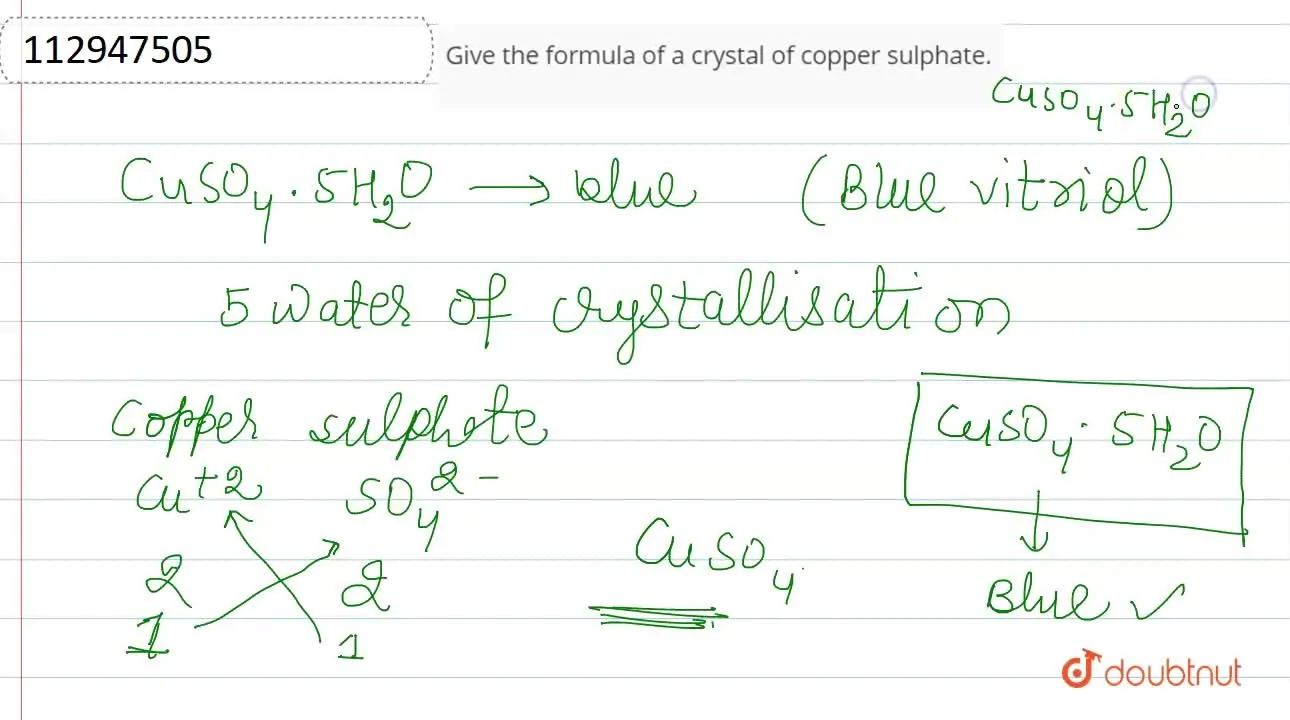 112947505
Give the formula of a crystal of copper sulphate.
CuSO4·5H2O
CuSO4·5H2O → blue (Blue vitriol)
5 water of crystallisation
Copper sulphate
CuSO4·5H2O
Cu+2 SO4 2-
CuSO4
2 2
Blue ✓
1 1
doubtnut